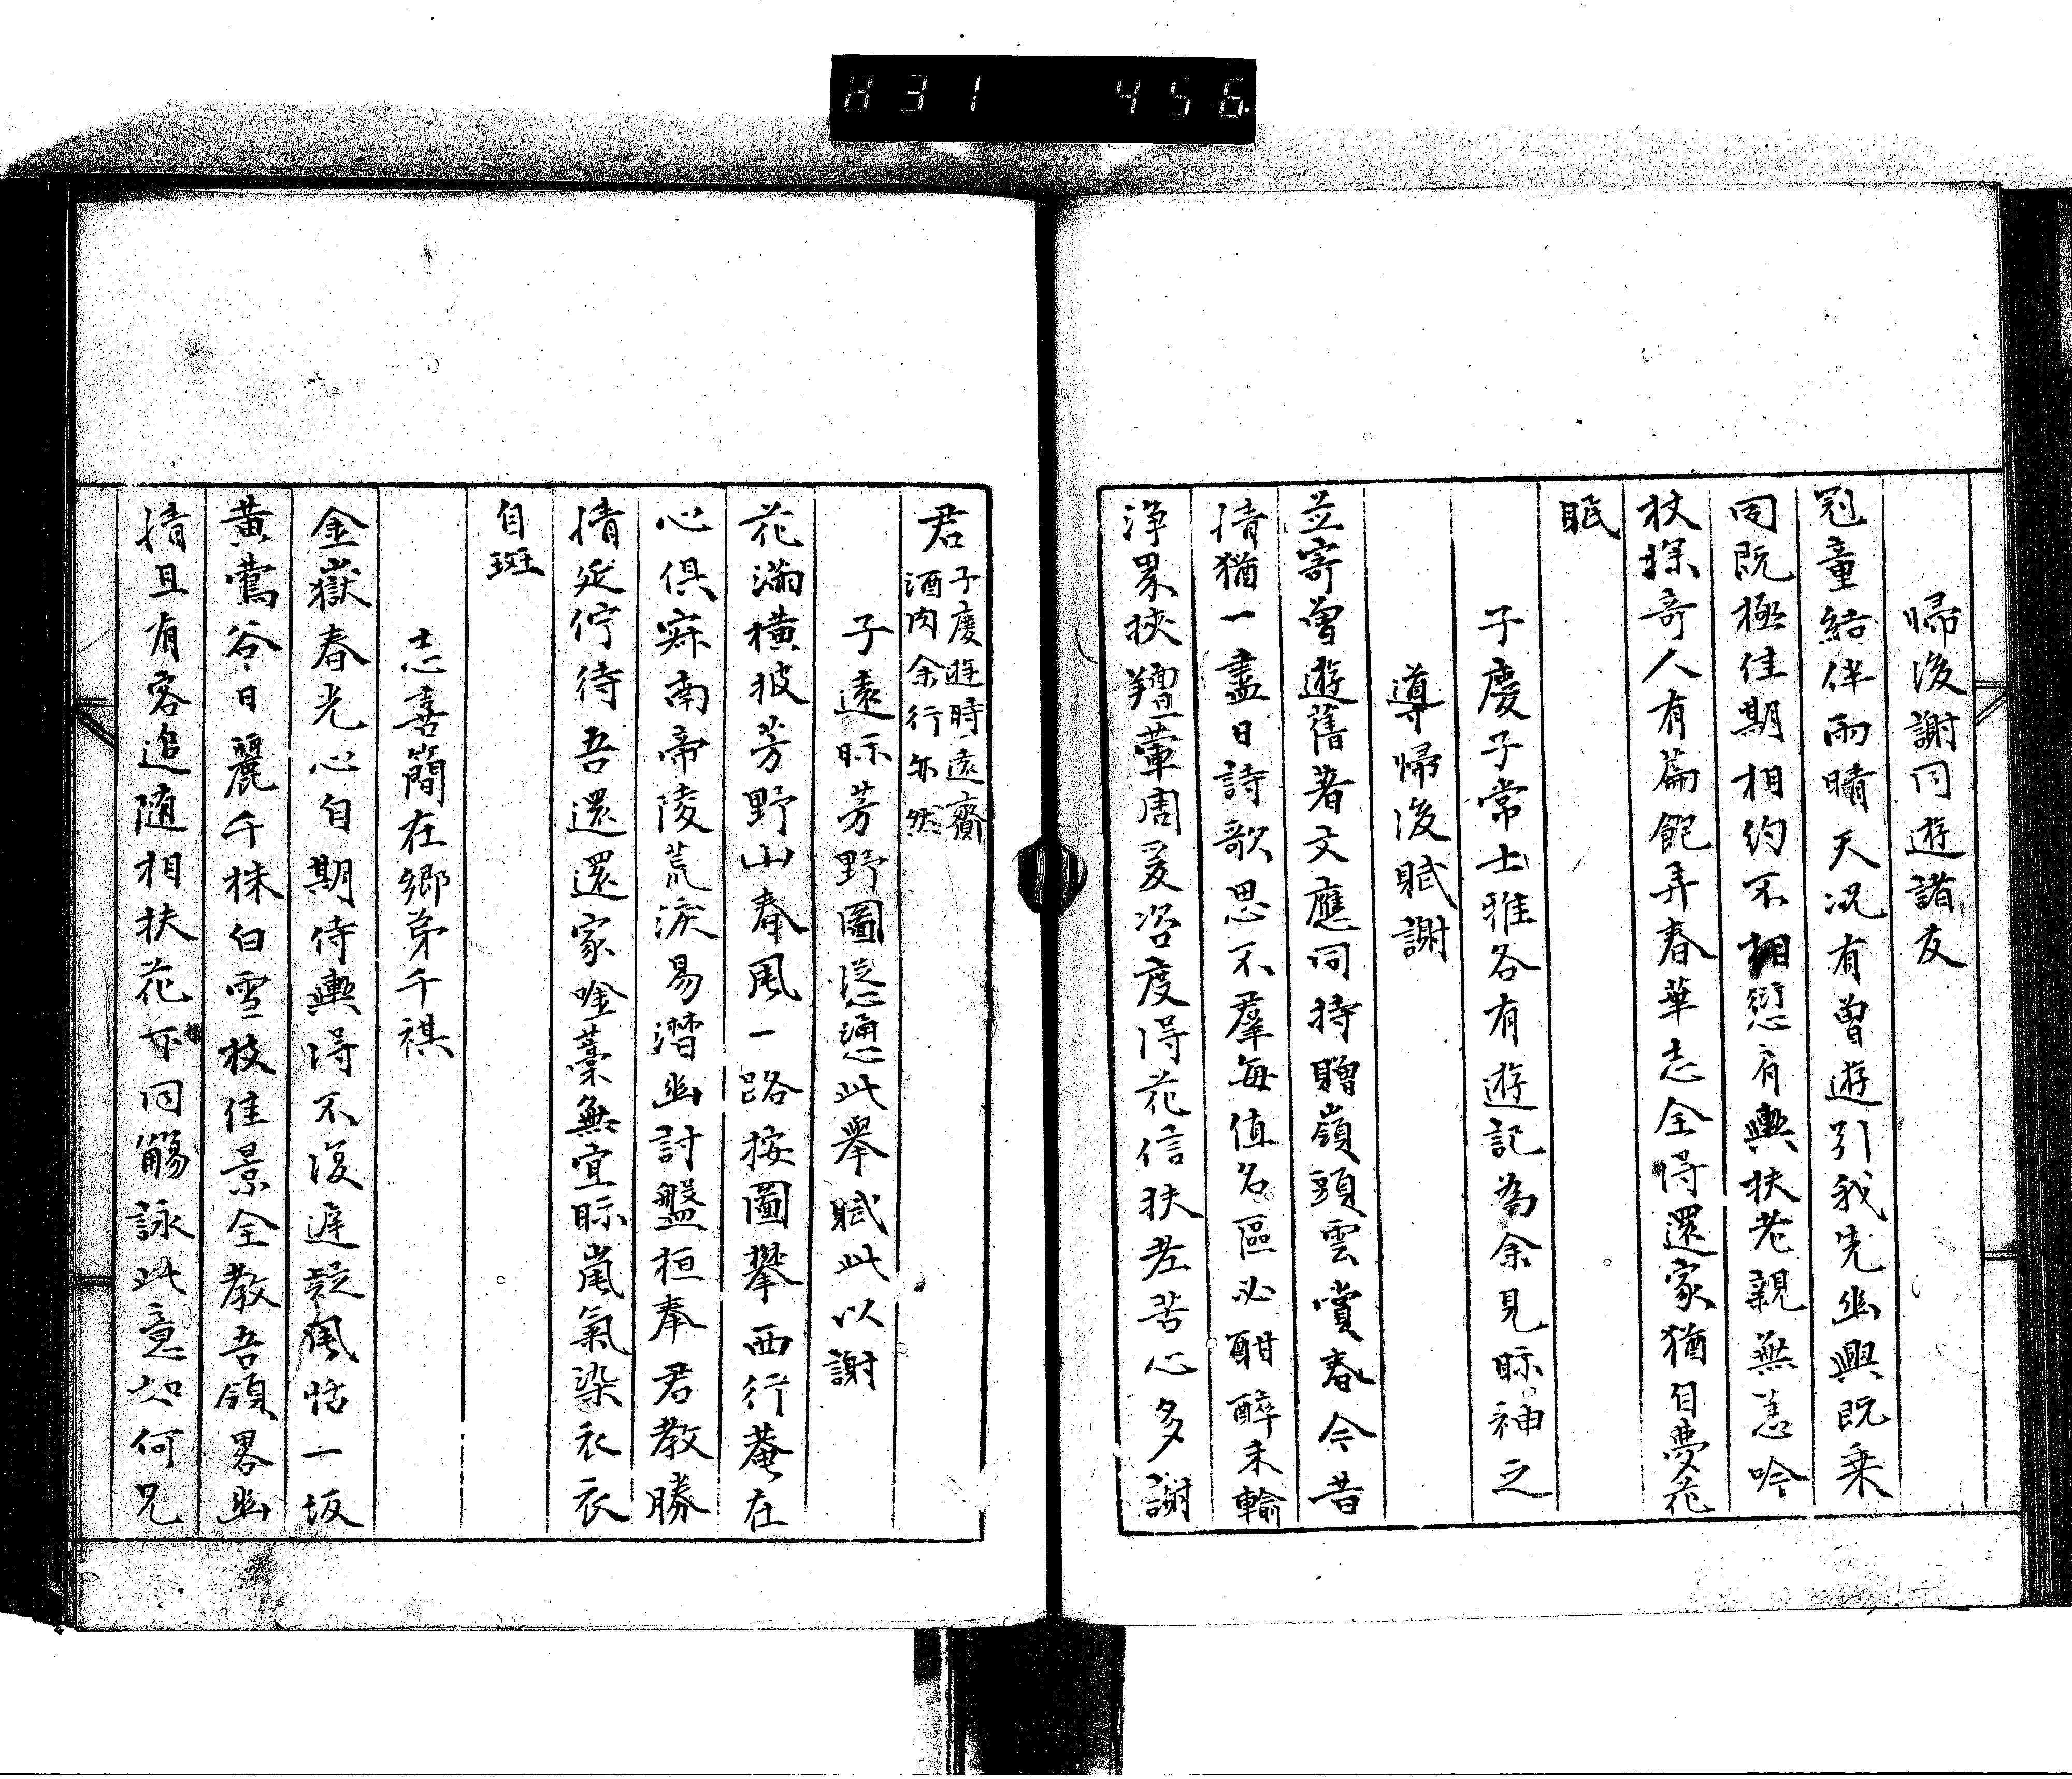 831 456
帰後謝同遊諸友
冠童結伴雨晴天况有曽遊引我先幽興既乗
同既極佳期相約不相愆肩輿扶老親無恙吟
杖探奇人有篇飽弄春華志全得還家猶自夢花
眠
子慶子常士雅各有遊記為余見眎神之
導帰後賦謝
並寄曽遊舊著文應同持贈嶺頭雲賞春今昔
情猶一盡日詩歌思不羣毎値名區必酣醉未輸
浄界狹羶葷周爰咨度得花信扶老苦心多謝
君子慶遊時遠齎
酒肉余行亦然
子遠眎芳野圖慫慂此擧賦此以謝
花滿橫披芳野山春風一路按圖攀西行菴在
心倶寂南帝陵荒淚易潸幽討盤桓奉君教勝
情延佇待吾還還家唫藁無宜眎嵐氣染衣衣
自斑
志喜簡在郷弟千祺
金嶽春光心自期侍輿得不復遅疑風恬一坂
黄鶯谷日麗千株白雪枝佳景全教吾領畧幽
情且有客追随相扶花下同觴詠此意如何兄